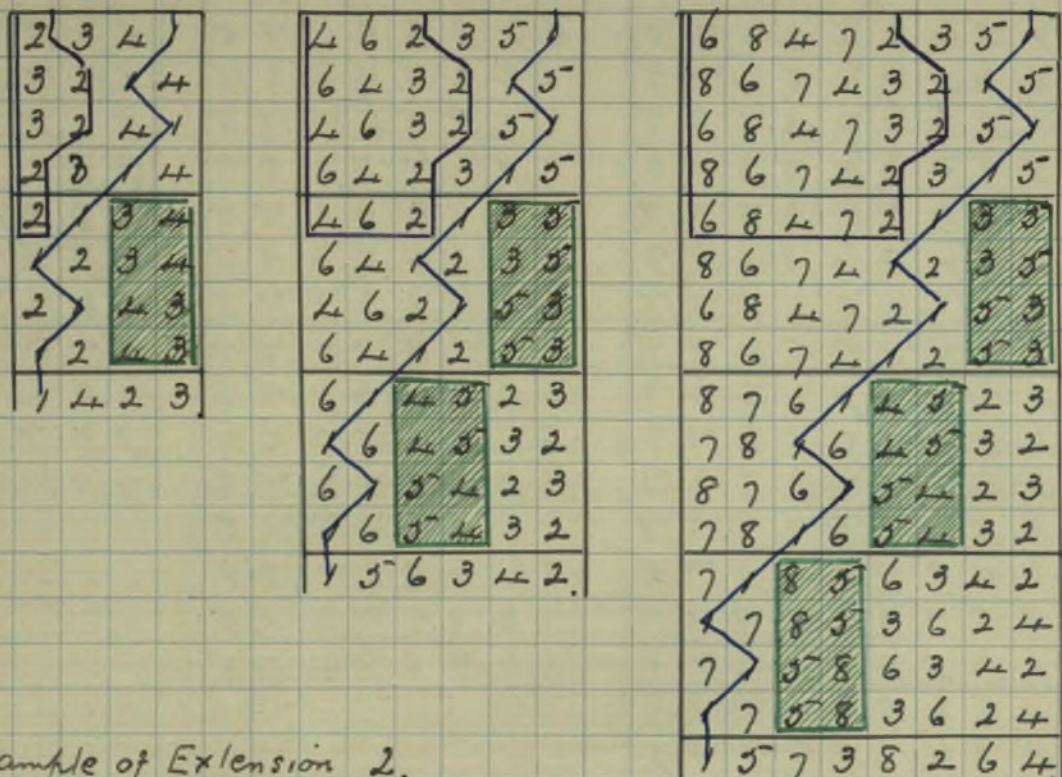 2 3 4 1
3 2 1 4
3 2 4 1
2 3 1 4
2 1 3 4
1 2 3 4
2 1 4 3
1 2 4 3
1 4 2 3.
4 6 2 3 5 1
6 4 3 2 1 5
4 6 3 2 5 1
6 4 2 3 1 5
4 6 2 1 3 5
6 4 1 2 3 5
4 6 2 1 5 3
6 4 1 2 5 3
6 1 4 5 2 3
1 6 4 5 3 2
6 1 5 4 2 3
1 6 5 4 3 2
1 5 6 3 4 2.
6 8 4 7 2 3 5 1
8 6 7 4 3 2 1 5
6 8 4 7 3 2 5 1
8 6 7 4 2 3 1 5
6 8 4 7 2 1 3 5
8 6 7 4 1 2 3 5
6 8 4 7 2 1 5 3
8 6 7 4 1 2 5 3
8 7 6 1 4 5 2 3
7 8 1 6 4 5 3 2
8 7 6 1 5 4 2 3
7 8 1 6 5 4 3 2
7 1 8 5 6 3 4 2
1 7 8 5 3 6 2 4
7 1 5 8 6 3 4 2
1 7 5 8 3 6 2 4
1 5 7 3 8 2 6 4
ample of Extension 2.